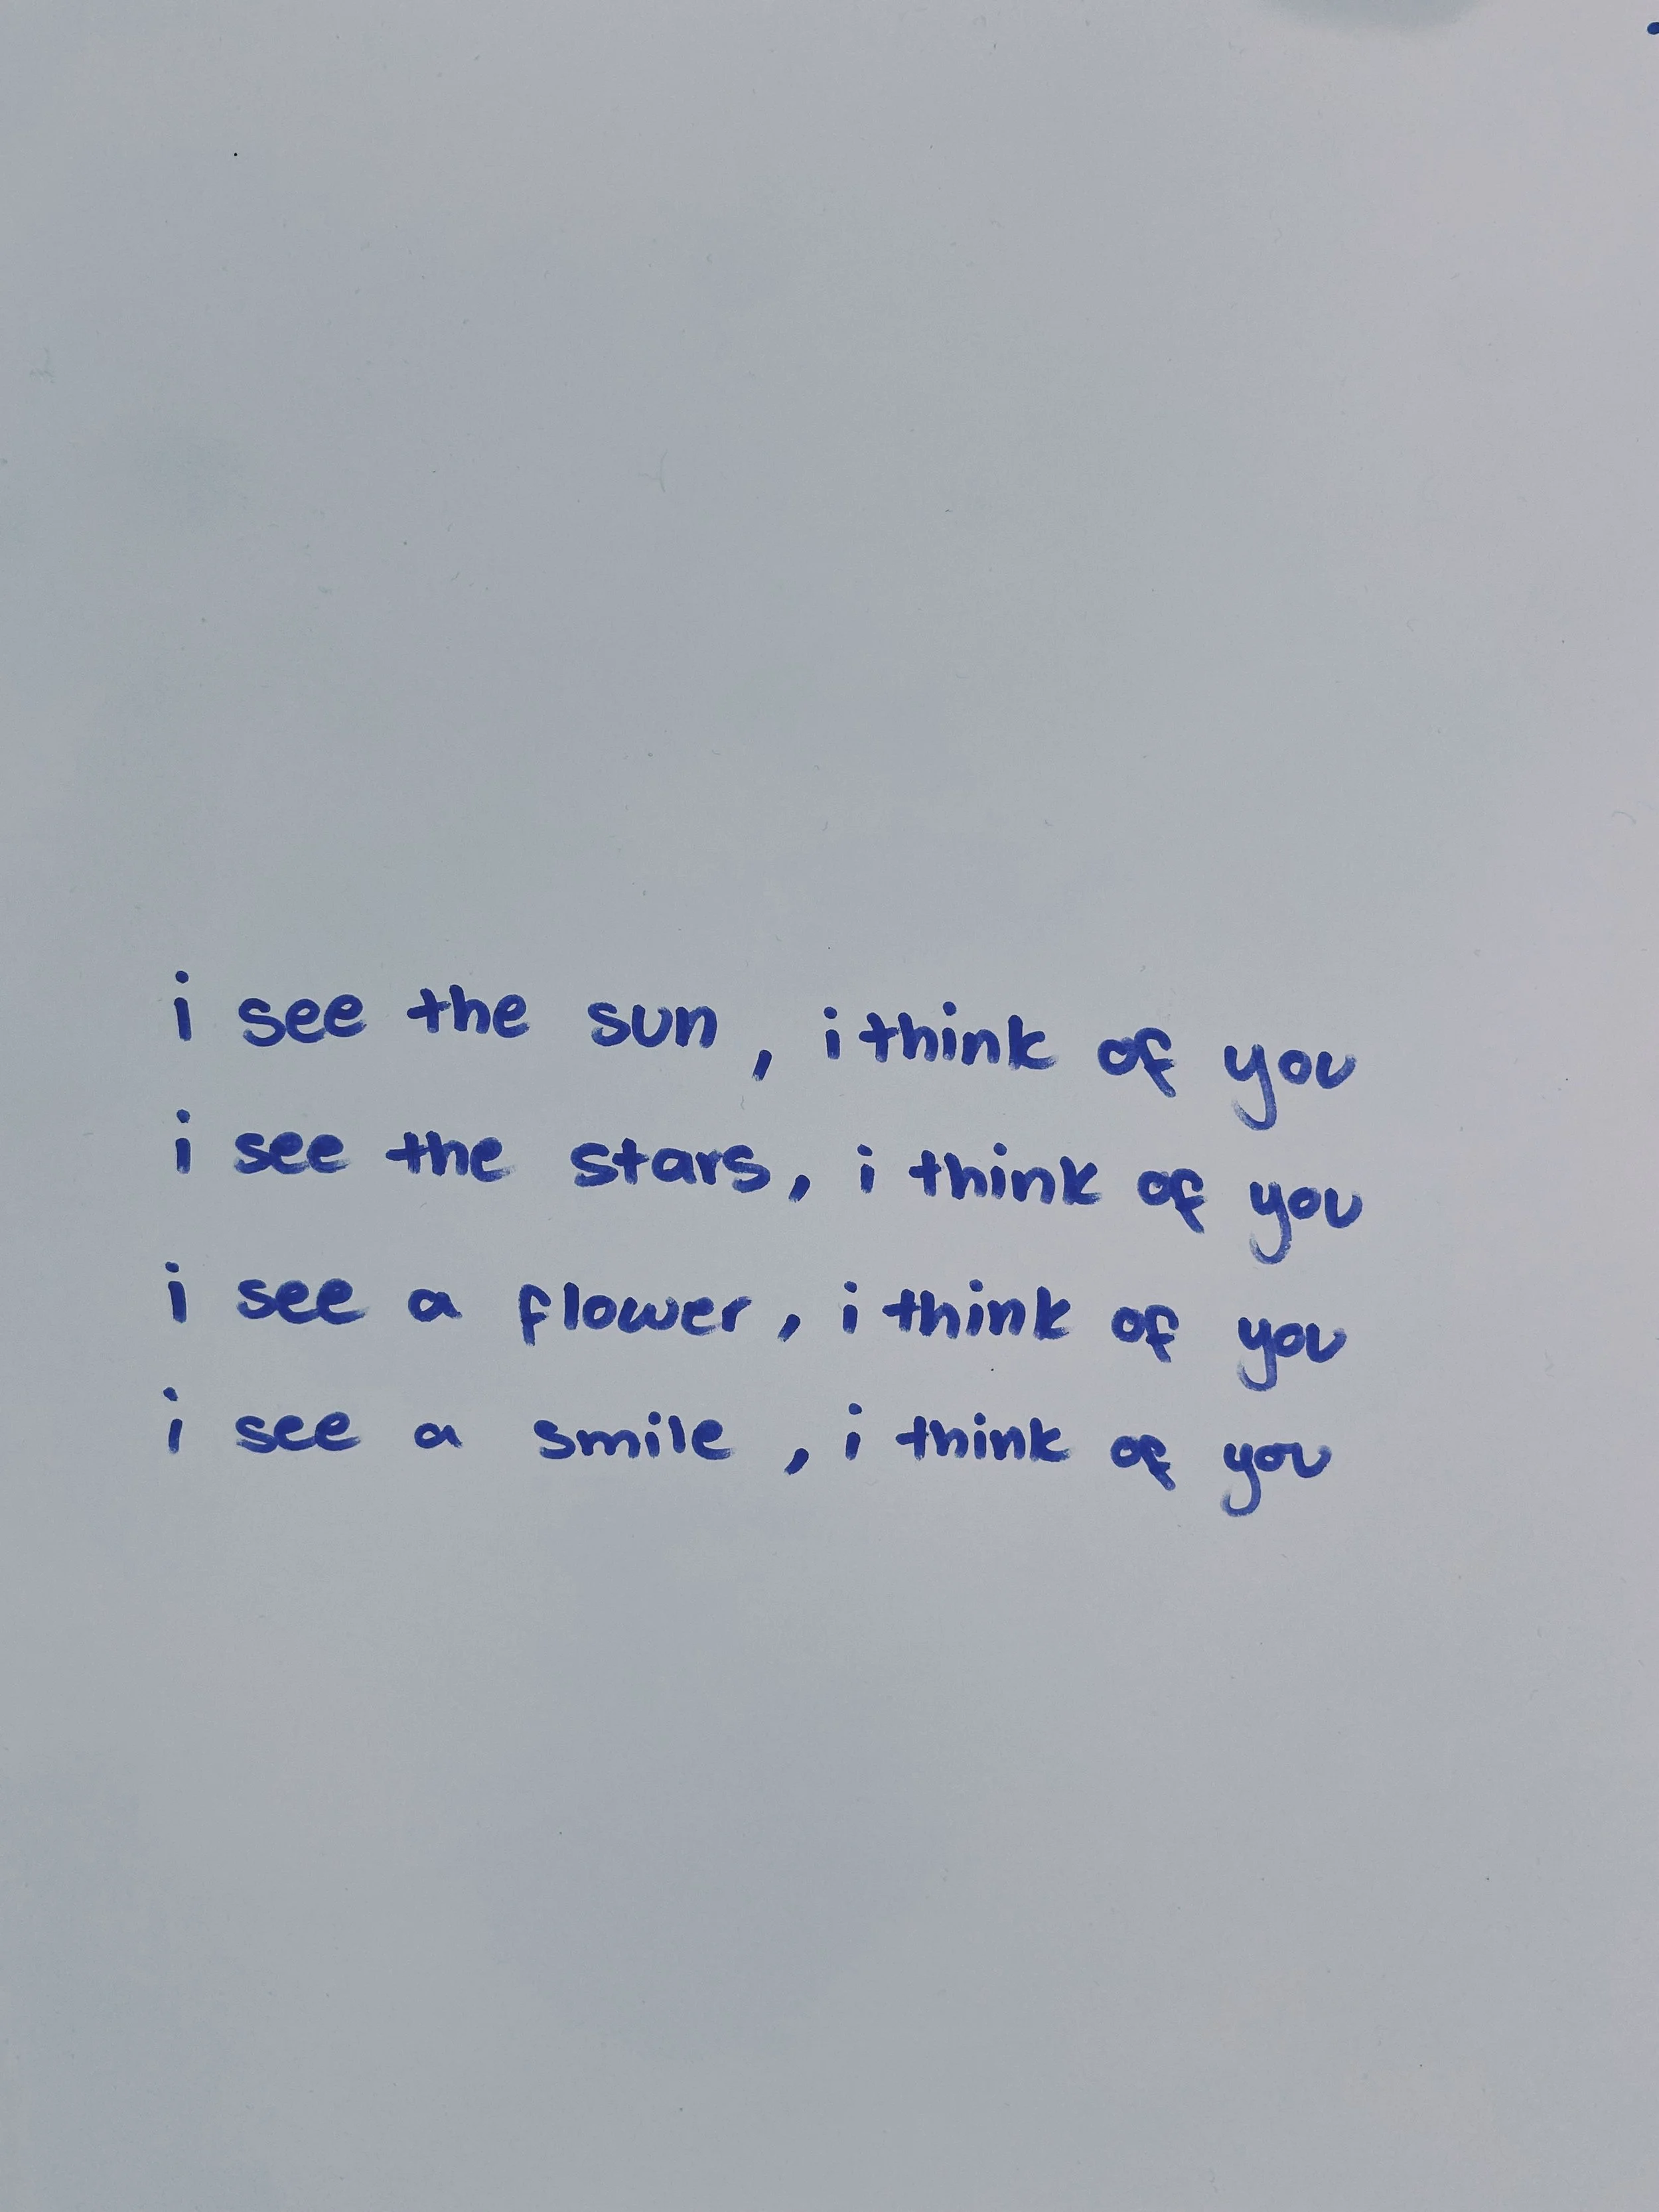 i see the sun, i think of you
i see the stars, i think of you
i see a flower, i think of you
i see a smile, i think of you